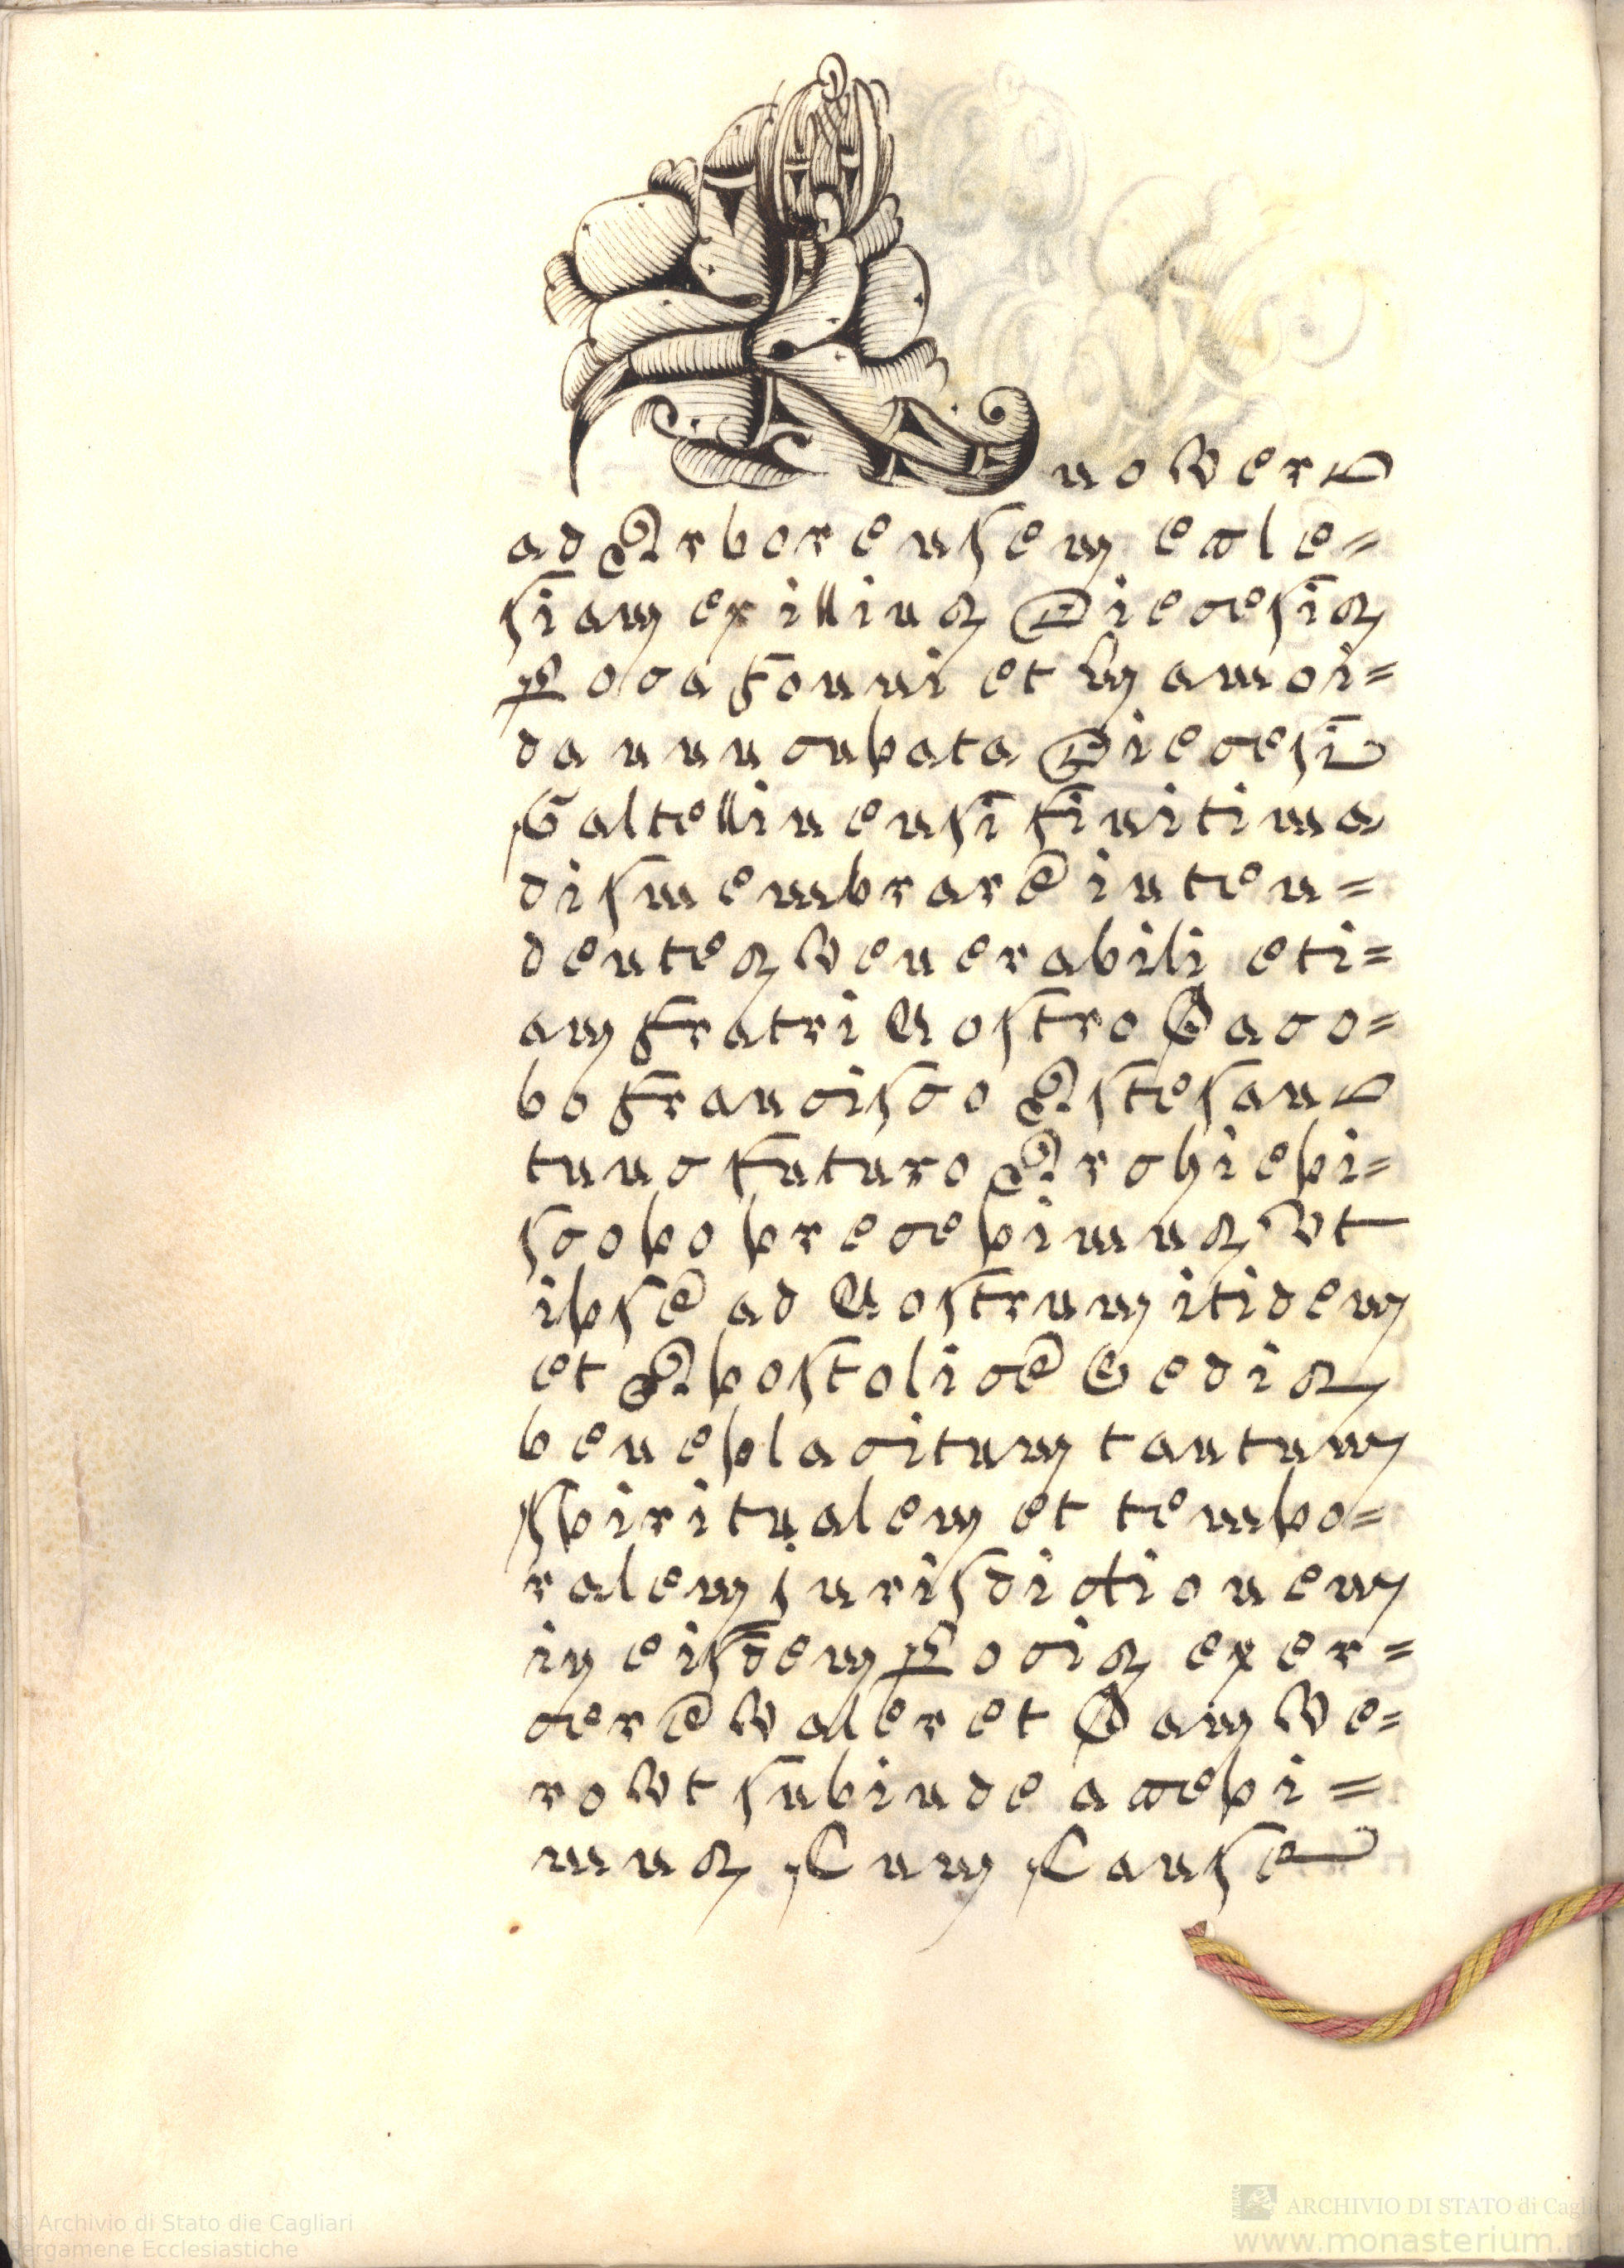 Quo Vero
ad Arborensem eccle=
siam ex illius Diecesis
Loca Fonni et Mamoi=
da nuncupata Diecesi
Galtellinensi finitima
dismembrare inten=
dentes Venerabili eti=
am fratri Nostro Jaco=
bo Francisco Astesano
tunc futuro Archiepi=
scopo precepimus Vt
ipse ad Nostrum itidem
et Apostolice Sedis
beneplacitum tantum
spiritualem et tempo=
ralem jurisdictionem
in eisdem Locis exer=
cere Valeret Jam Ve=
ro Vt subinde accepi=
mus Cum Cause
© Archivio di Stato die Cagliari
Pergamene Ecclesiastiche
ARCHIVIO DI STATO di Cagli
www.monasterium.ne